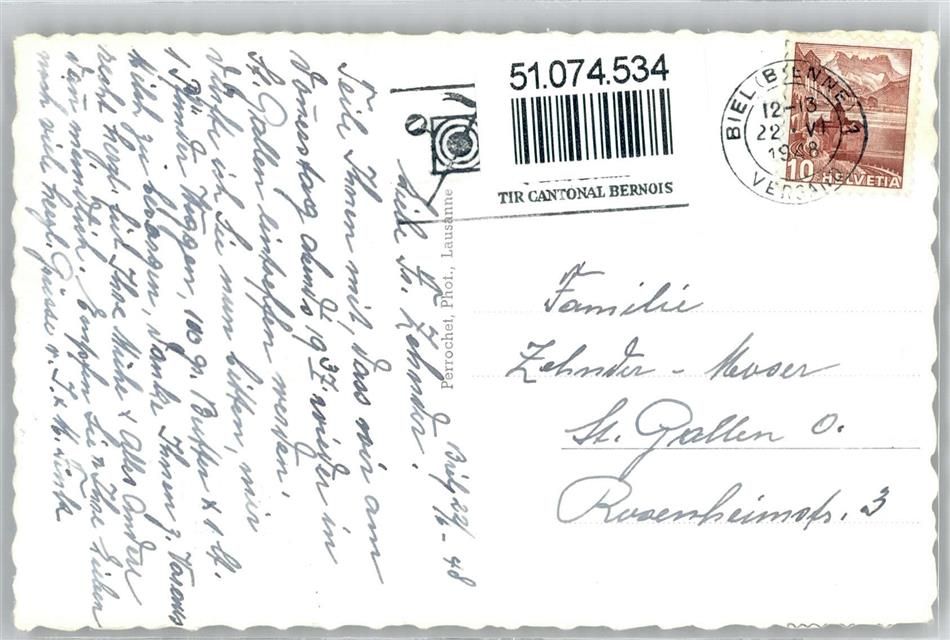 51.074.534
TIR CANTONAL BERNOIS
BIEL (BIENNE) 1
12-13
22. VI
1948
VERSAND
10 HELVETIA
Perrochet, Phot., Lausanne
Familie
Zehnder - Moser
St. Gallen O.
Rosenheimstr. 3
Biel, 22/6 - 48
Fr. Zehnder.
Teile Ihnen mit, dass wir am
Donnerstag abends 19 37 wieder in
St. Gallen eintreffen werden,
dürfte ich Sie nun bitten, mir
1 Pfünder Roggen, 100 gr. Butter & 1 lt.
Milch zu besorgen, danke Ihnen z. Voraus
recht herzl. für Ihre Mühe & alles Andere
dann mündlich. Empfn. Sie & Ihre Lieben
noch viele herzl. Grüsse v. J. & M.